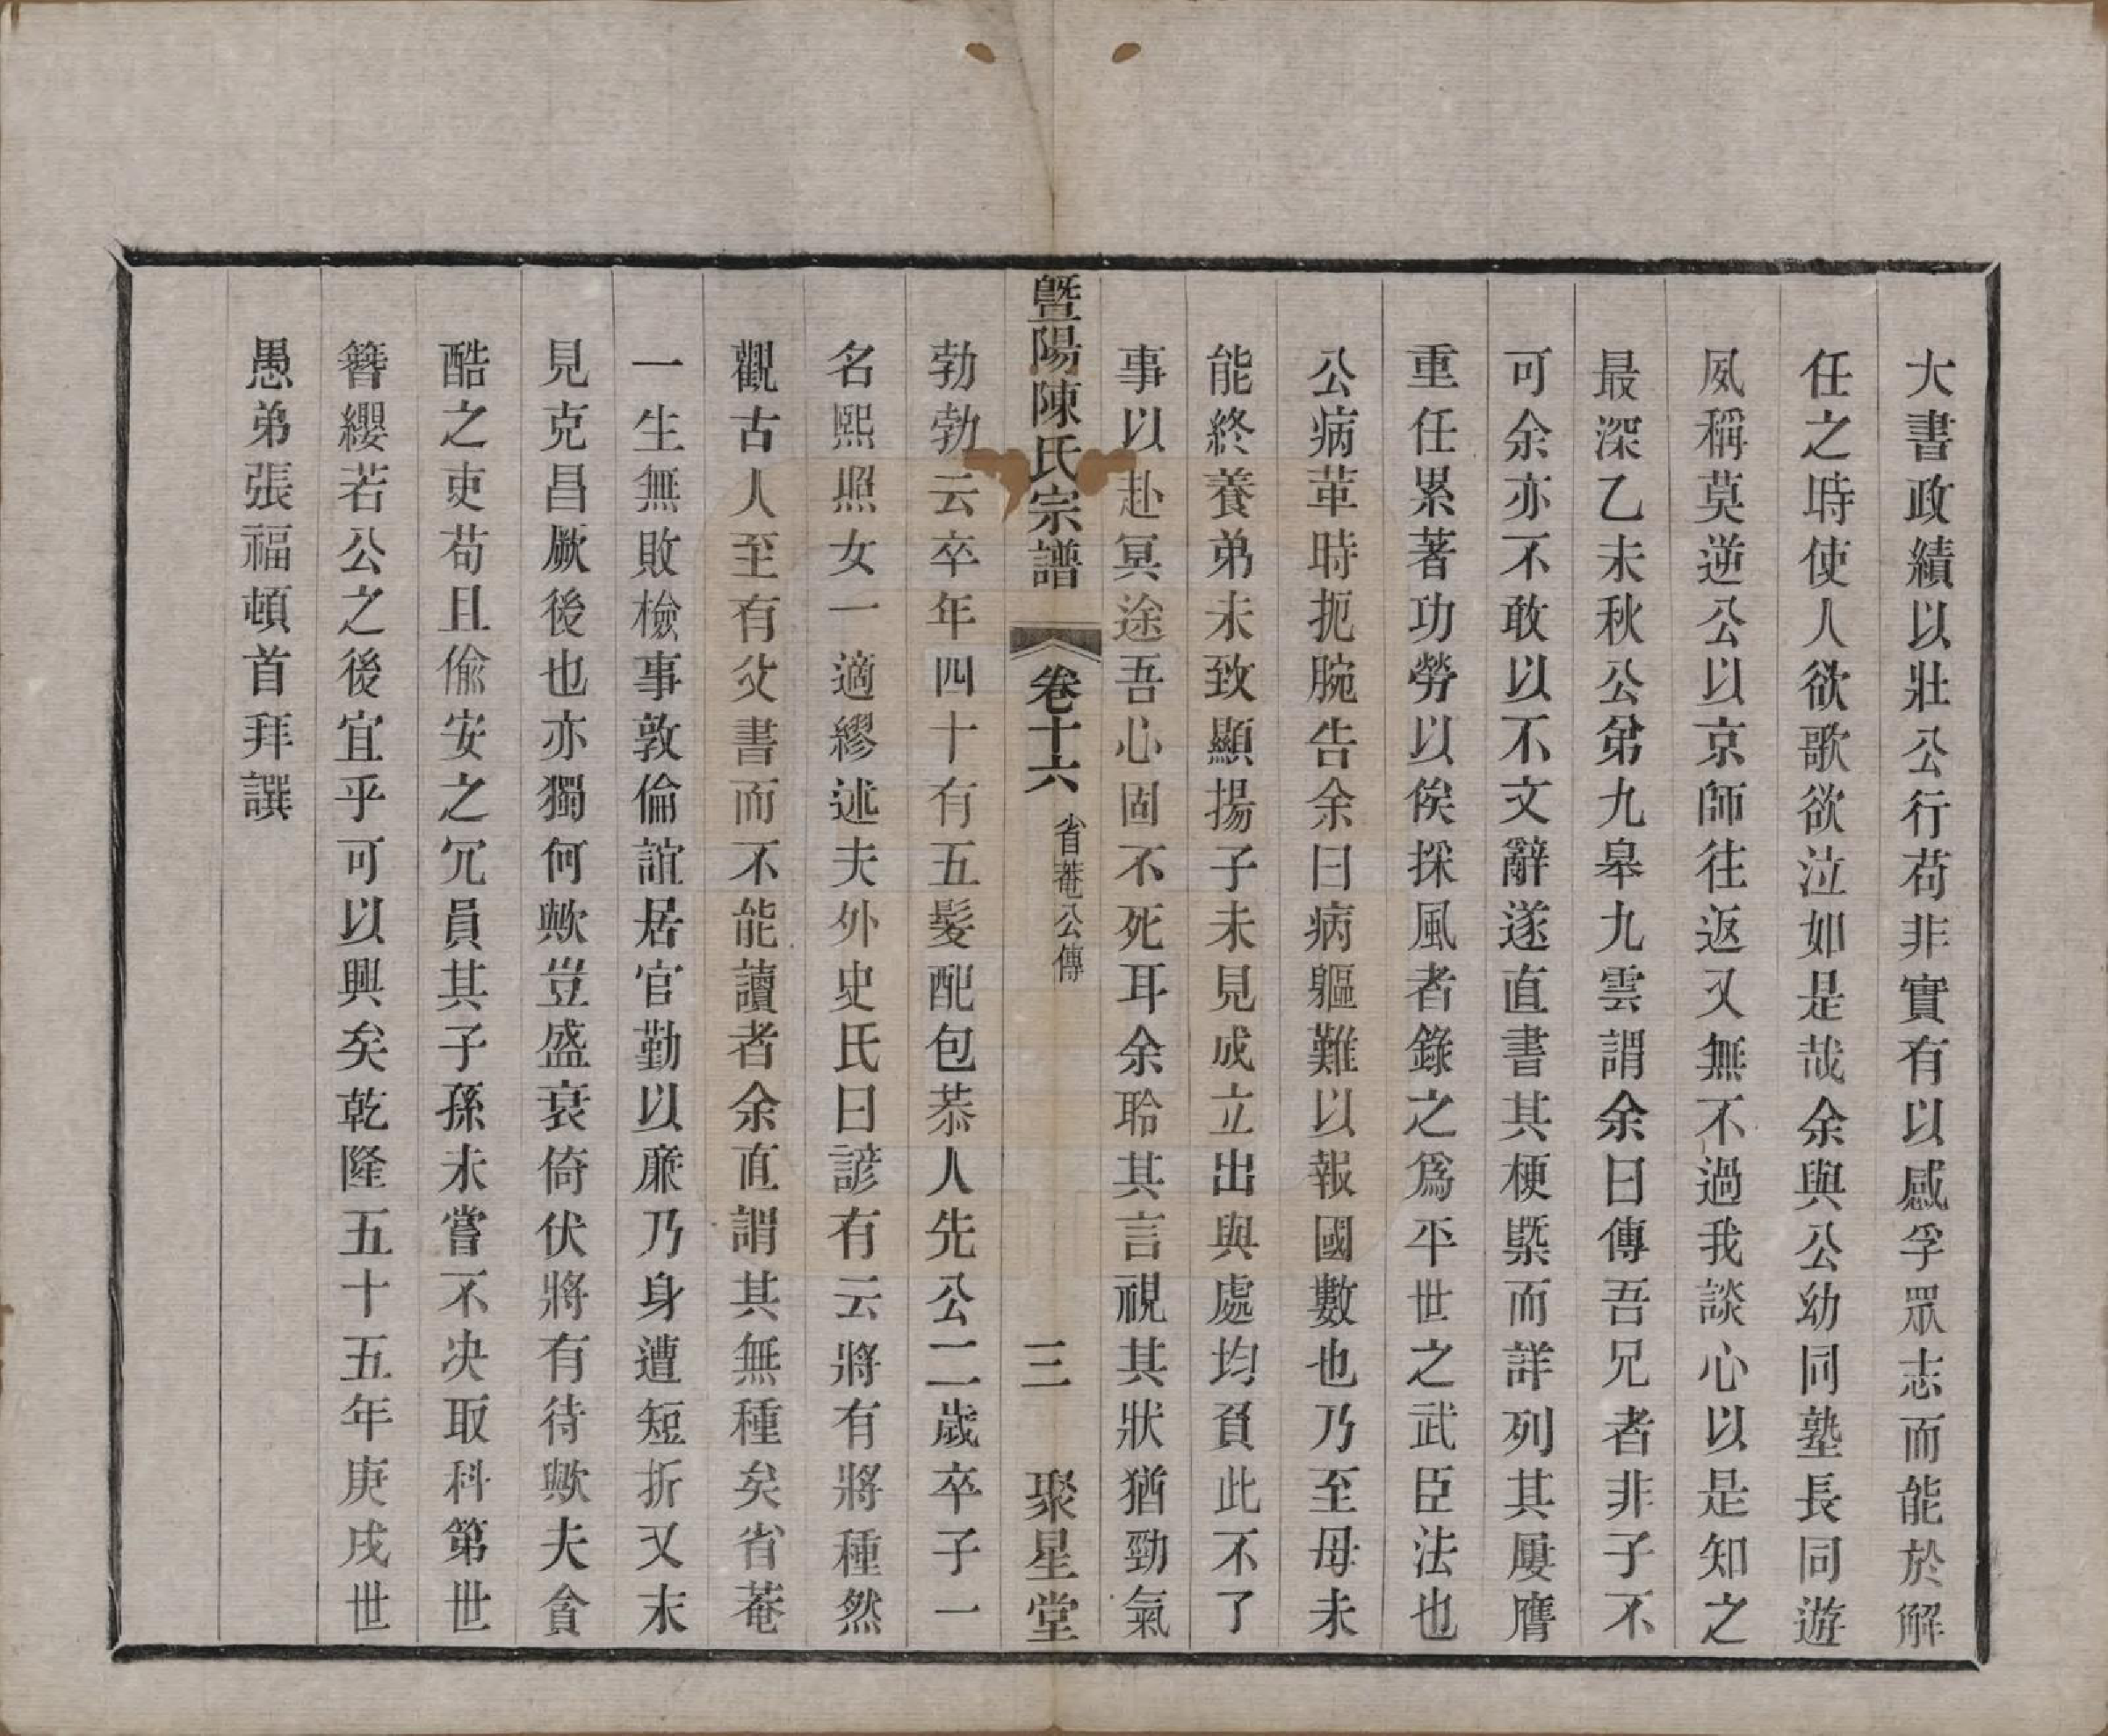 大書政績以壯公行苟非實有以感孚眾志而能於解
任之時使人欲歌欲泣如是哉余與公幼同塾長同遊
夙稱莫逆公以京師往返又無不過我談心以是知之
最深乙未秋公弟九皋九雲謂余曰傳吾兄者非子不
可余亦不敢以不文辭遂直書其梗槩而詳列其屢膺
重任累著功勞以俟採風者錄之為平世之武臣法也
公病革時扼腕告余曰病軀難以報國數也乃至母未
能終養弟未致顯揚子未見成立出與處均負此不了
事以赴冥途吾心固不死耳余聆其言視其狀猶勁氣
暨陽陳氏宗譜 卷十六 省菴公傳 三 聚星堂
勃勃云卒年四十有五髮配包恭人先公二歲卒子一
名熙照女一適繆述夫外史氏曰諺有云將有將種然
觀古人至有父書而不能讀者余直謂其無種矣省菴
一生無敗檢事敦倫誼居官勤以廉乃身遭短折又末
見克昌厥後也亦獨何歟豈盛衰倚伏將有待歟夫貪
酷之吏苟且偷安之冗員其子孫未嘗不决取科第世
簪纓若公之後宜乎可以興矣乾隆五十五年庚戌世
愚弟張福頓首拜譔